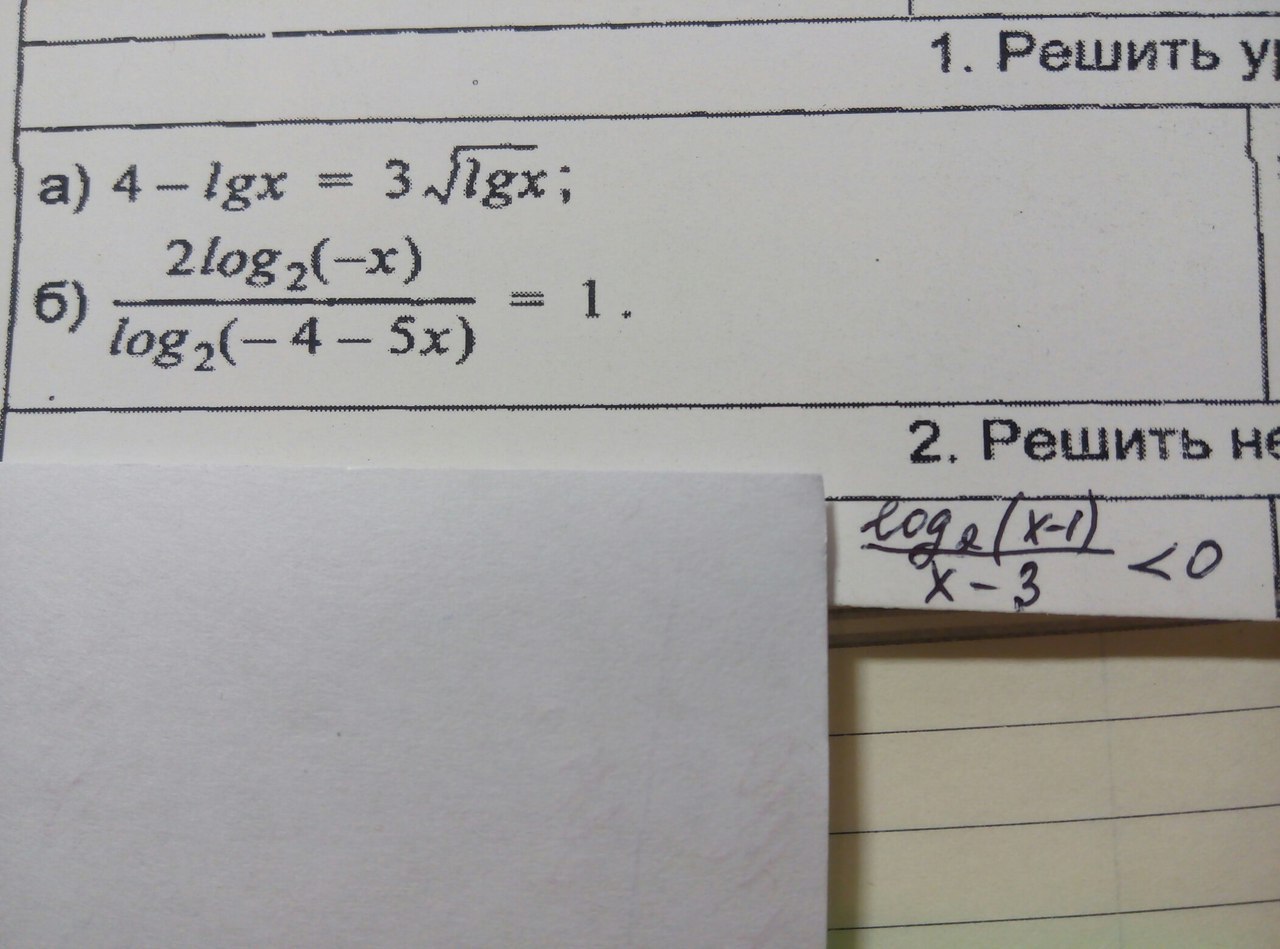 1. Решить
а) 4 – lgx = 3√lgx;
б) 2log₂(–x) / log₂(–4 – 5x) = 1.
2. Решить
log₂(x-1) / x-3 < 0